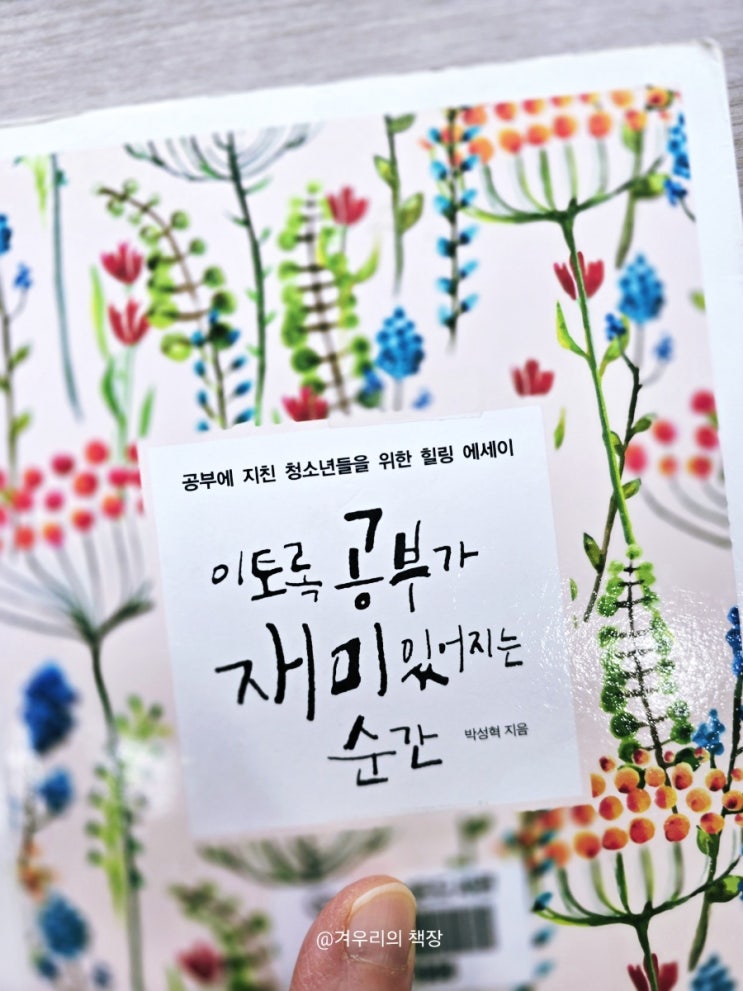 공부에 지친 청소년들을 위한 힐링 에세이
이토록 공부가
재미있어지는
순간
박성혁 지음
@겨우리의 책장